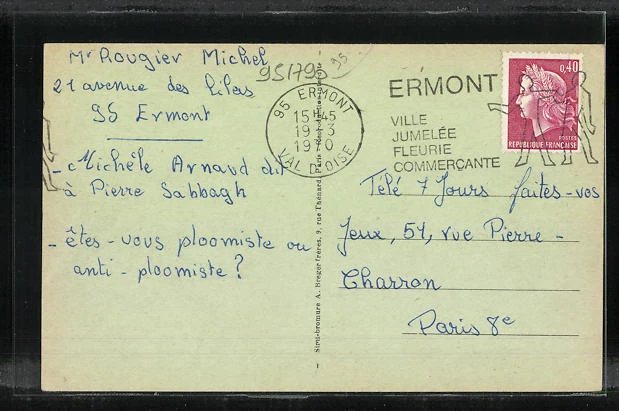 Mr Rougier Michel
21 avenue des Lilas
95 Ermont
95/795
95
95 ERMONT
15H45
19-3
1970
VAL D'OISE
ERMONT
VILLE
JUMELÉE
FLEURIE
COMMERÇANTE
0,40
POSTES
REPUBLIQUE FRANÇAISE
- Michèle Arnaud dit
à Pierre Sabbagh
- êtes-vous ploomiste ou
anti-ploomiste ?
Simi-bromure A. Breger frères, 9, rue Thénard, Paris
Télé 7 Jours faites-vos
Jeux, 51, rue Pierre -
Charron
Paris 8e